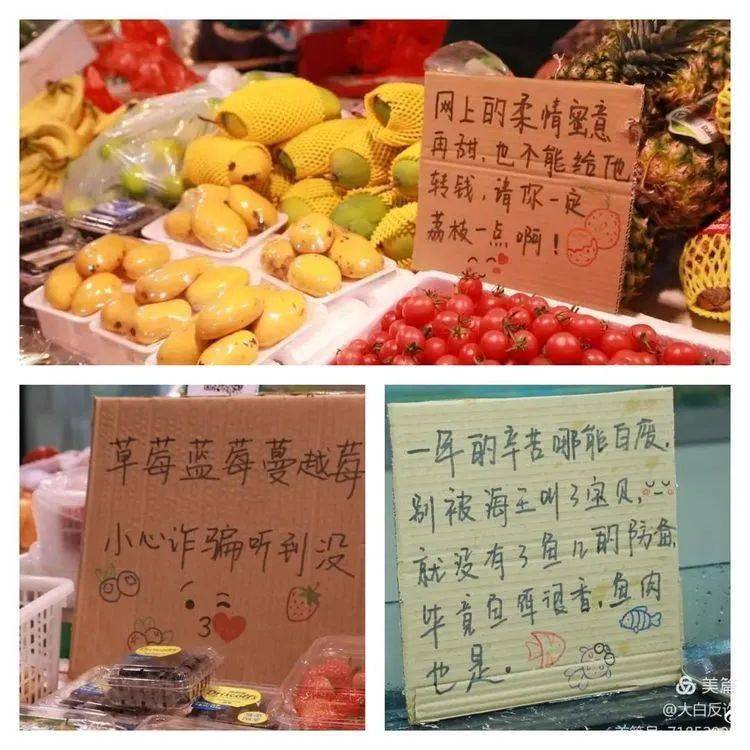 网上的柔情蜜意
再甜,也不能给他
转钱,请你一定
荔枝一点啊!
草莓蓝莓蔓越莓
小心诈骗听到没
一年的辛苦哪能白废,
别被海王叫了宝贝,
就没有了鱼儿的防备,
毕竟鱼饵很香,鱼肉
也是.
美篇
@大白反诈